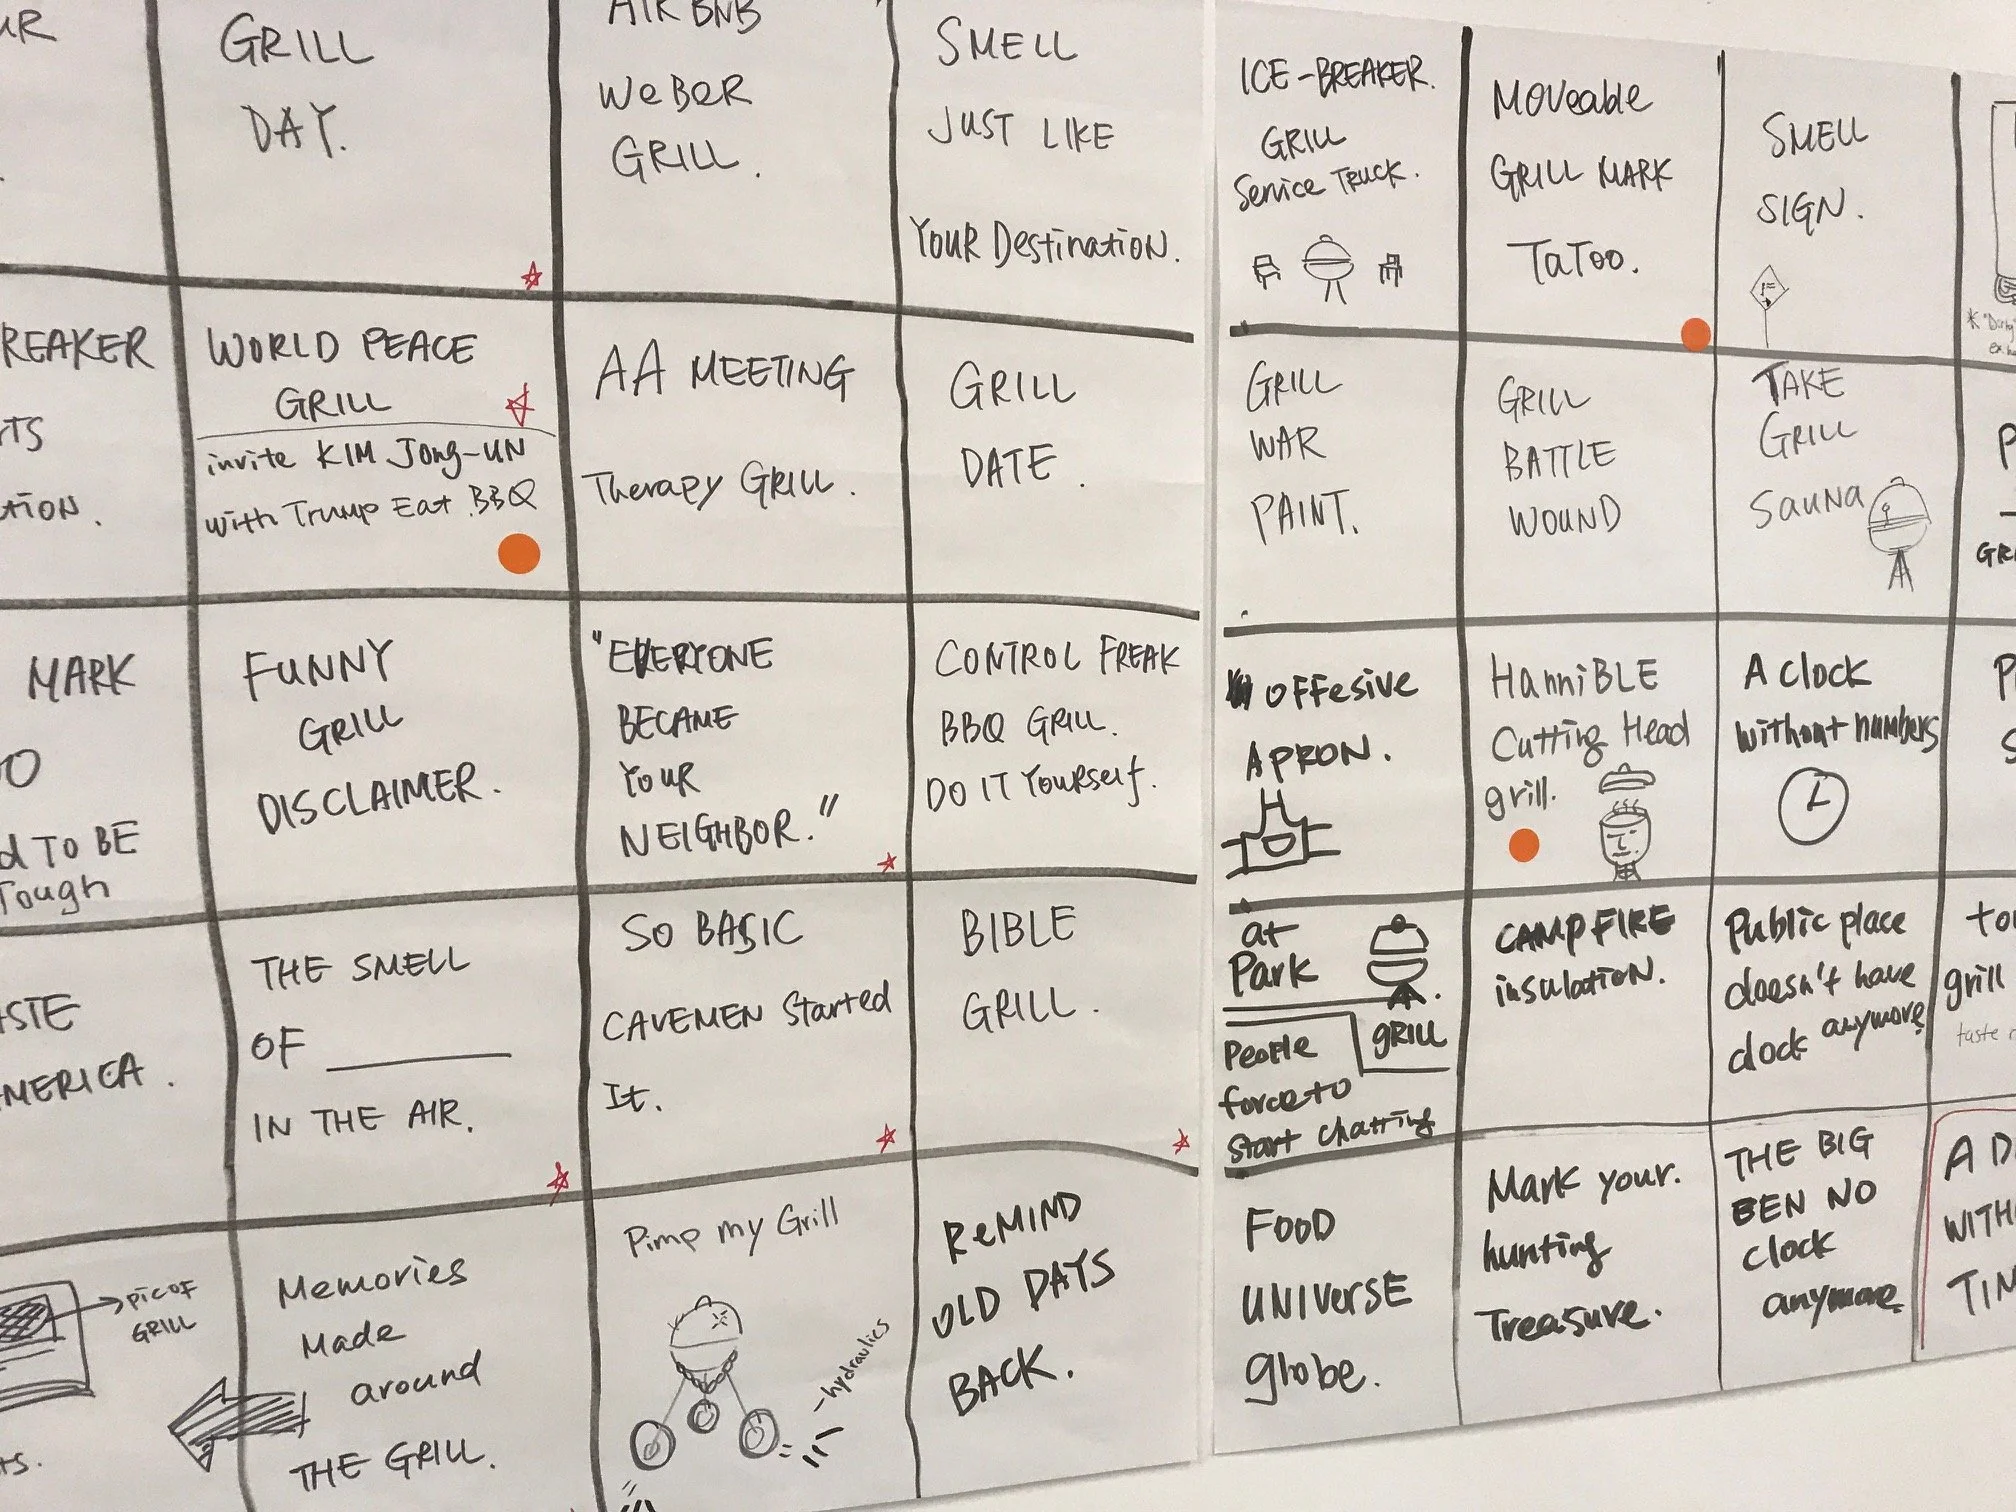 GRILL
DAY.
AIR BNB
WEBER
GRILL.
SMELL
JUST LIKE
YOUR Destination.
ICE-BREAKER.
GRILL
Service TRUCK.
MOVeable
GRILL MARK
TaToo.
SMELL
SIGN.
REAKER
WORLD PEACE
GRILL
invite KIM Jong-UN
with Trump Eat BBQ
AA MEETING
Therapy GRILL.
GRILL
DATE.
GRILL
WAR
PAINT.
GRILL
BATTLE
WOUND
TAKE
GRILL
SauNa
MARK
d TO BE
Tough
FUNNY
GRILL
DISCLAIMER.
"EVERYONE
BECAME
YOUR
NEIGHBOR."
CONTROL FREAK
BBQ GRILL.
DO IT YOURSelf.
OFFesive
APRON.
HanniBLE
Cutting Head
grill.
A clock
without numbers
MERICA.
THE SMELL
OF ________
IN THE AIR.
SO BASIC
CAVEMEN Started
It.
BIBLE
GRILL.
at
Park
GRILL
PEOPLE
force to
Start chatting
CAMPFIRE
insulatioN.
Public place
doesn't have
clock anymore
grill
PIC OF
GRILL
Memories
Made
around
THE GRILL.
Pimp my Grill
hydraulics
ReMIND
OLD DAYS
BACK.
FOOD
UNIVERSE
globe.
Mark your.
hunting
Treasure.
THE BIG
BEN NO
clock
anymore